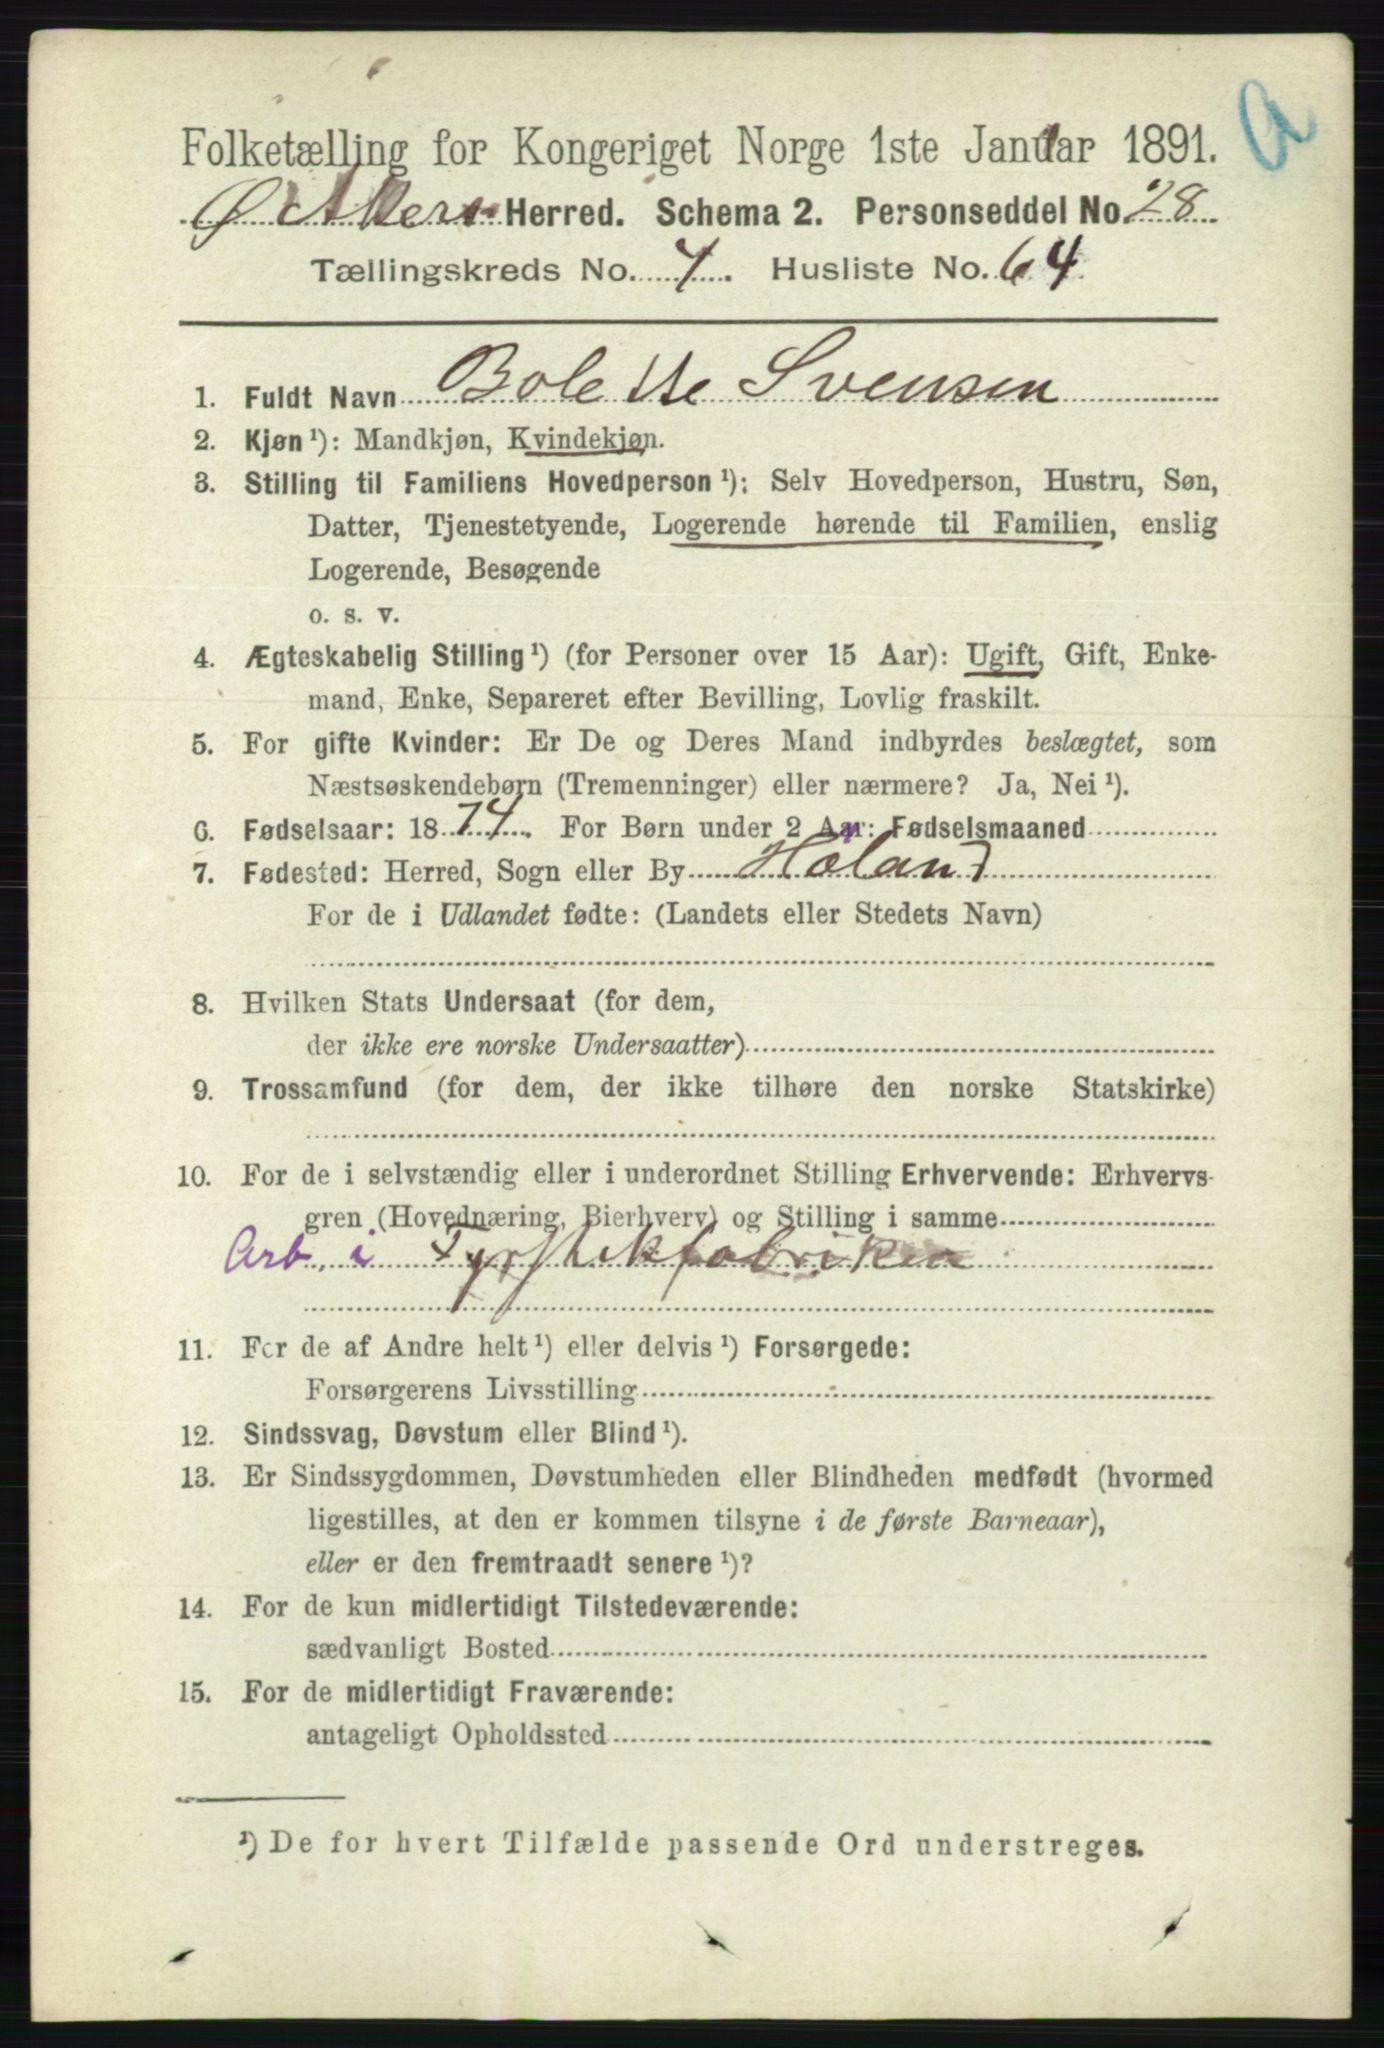 a
Folketælling for Kongeriget Norge 1ste Januar 1891.
Ø. Akers Herred. Schema 2. Personseddel No. 28
Tællingskreds No. 7. Husliste No. 64
1. Fuldt Navn Bolette Svensen
2. Kjøn¹): Mandkjøn, Kvindekjøn.
3. Stilling til Familiens Hovedperson¹): Selv Hovedperson, Hustru, Søn,
Datter, Tjenestetyende, Logerende hørende til Familien, enslig
Logerende, Besøgende
o. s. v.
4. Ægteskabelig Stilling¹) (for Personer over 15 Aar): Ugift, Gift, Enke-
mand, Enke, Separeret efter Bevilling, Lovlig fraskilt.
5. For gifte Kvinder: Er De og Deres Mand indbyrdes beslægtet, som
Næstsøskendebørn (Tremenninger) eller nærmere? Ja, Nei¹).
6. Fødselsaar: 1874. For Børn under 2 Aar: Fødselsmaaned
7. Fødested: Herred, Sogn eller By Høland
For de i Udlandet fødte: (Landets eller Stedets Navn)
8. Hvilken Stats Undersaat (for dem,
der ikke ere norske Undersaatter)
9. Trossamfund (for dem, der ikke tilhøre den norske Statskirke)
10. For de i selvstændig eller i underordnet Stilling Erhvervende: Erhvervs-
gren (Hovednæring, Bierhverv) og Stilling i samme
Arb. i Fyrstikfabriken
11. For de af Andre helt¹) eller delvis¹) Forsørgede:
Forsørgerens Livsstilling
12. Sindssvag, Døvstum eller Blind¹).
13. Er Sindssygdommen, Døvstumheden eller Blindheden medfødt (hvormed
ligestilles, at den er kommen tilsyne i de første Barneaar),
eller er den fremtraadt senere¹)?
14. For de kun midlertidigt Tilstedeværende:
sædvanligt Bosted
15. For de midlertidigt Fraværende:
antageligt Opholdssted
¹) De for hvert Tilfælde passende Ord understreges.